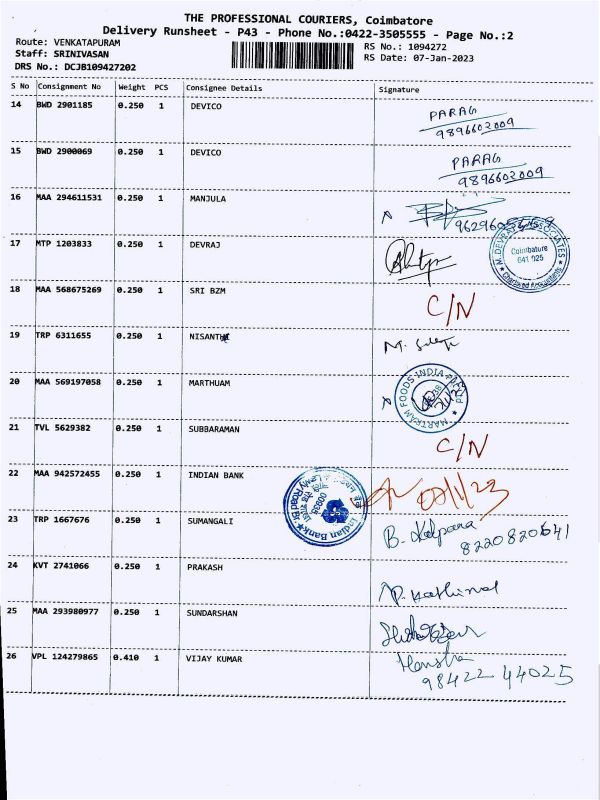 THE PROFESSIONAL COURIERS, Coimbatore
Delivery Runsheet - P43 - Phone No.:0422-3505555 - Page No.:2
Route: VENKATAPURAM
Staff: SRINIVASAN
DRS No.: DCJB109427202
RS No.: 1094272
RS Date: 07-Jan-2023
S No Consignment No Weight PCS Consignee Details Signature
14 BWD 2901185 0.250 1 DEVICO PARAG
9896602009
15 BWD 2900069 0.250 1 DEVICO PARAG
9896602009
16 MAA 294611531 0.250 1 MANJULA
17 MTP 1203833 0.250 1 DEVRAJ
M.DEVRAJ & ASSOCIATES
Coimbatore
641 025
Chartered Accountants
18 MAA 568675269 0.250 1 SRI BZM C/N
19 TRP 6311655 0.250 1 NISANTHI
20 MAA 569197058 0.250 1 MARTHUAM
MARTRAM FOODS INDIA
21 TVL 5629382 0.250 1 SUBBARAMAN C/N
22 MAA 942572455 0.250 1 INDIAN BANK
Indian Bank
00835
23 TRP 1667676 0.250 1 SUMANGALI B. Kalpana
8220820641
24 KVT 2741066 0.250 1 PRAKASH
25 MAA 293980977 0.250 1 SUNDARSHAN
26 VPL 124279865 0.410 1 VIJAY KUMAR
98422 44025